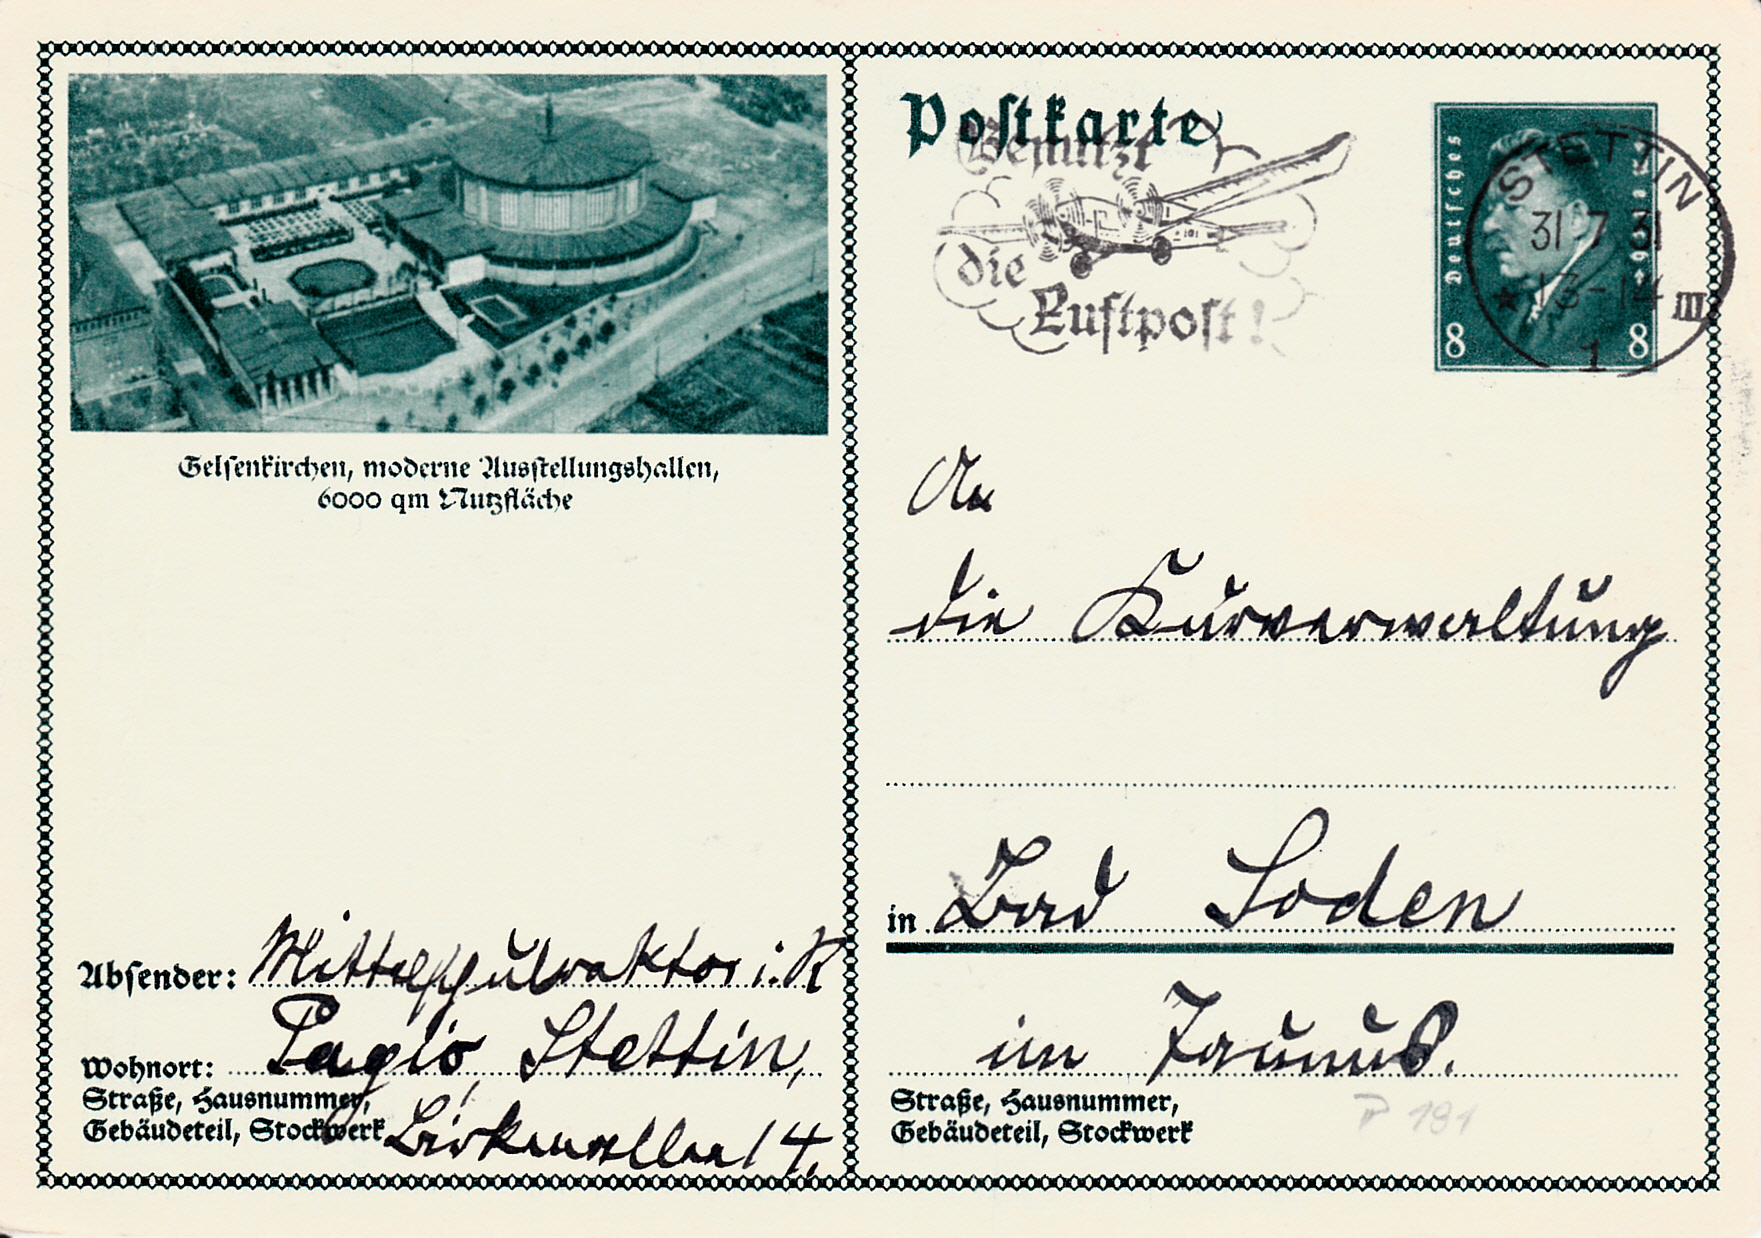 Gelsenkirchen, moderne Ausstellungshallen,
6000 qm Nutzfläche
Absender: Mittelschulrektor i. R
Pagio, Stettin,
Wohnort:
Straße, Hausnummer,
Gebäudeteil, Stockwerk
Birkenallee 14.
Postkarte
Benutzt
die
Luftpost!
Deutsches Reich
8 8
STETTIN
31 7 31
* 13-14 III
1
An
die Kurverwaltung
in Bad Soden
im Taunus.
Straße, Hausnummer,
Gebäudeteil, Stockwerk
P 191